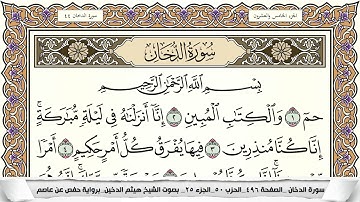 الجزء الخامس والعشرون
سورة الدخان ٤٤
سُورَةُ الدُّخَانِ
بِسْمِ اللَّهِ الرَّحْمَٰنِ الرَّحِيمِ
حمٓ ١ وَالْكِتَٰبِ الْمُبِينِ ٢ إِنَّآ أَنزَلْنَٰهُ فِى لَيْلَةٍ مُّبَٰرَكَةٍ ۚ
إِنَّا كُنَّا مُنذِرِينَ ٣ فِيهَا يُفْرَقُ كُلُّ أَمْرٍ حَكِيمٍ ٤ أَمْرًا
سورة الدخان _الصفحة ٤٩٦_ الحزب ٥٠_ الجزء ٢٥_ بصوت الشيخ هيثم الدخين. برواية حفص عن عاصم